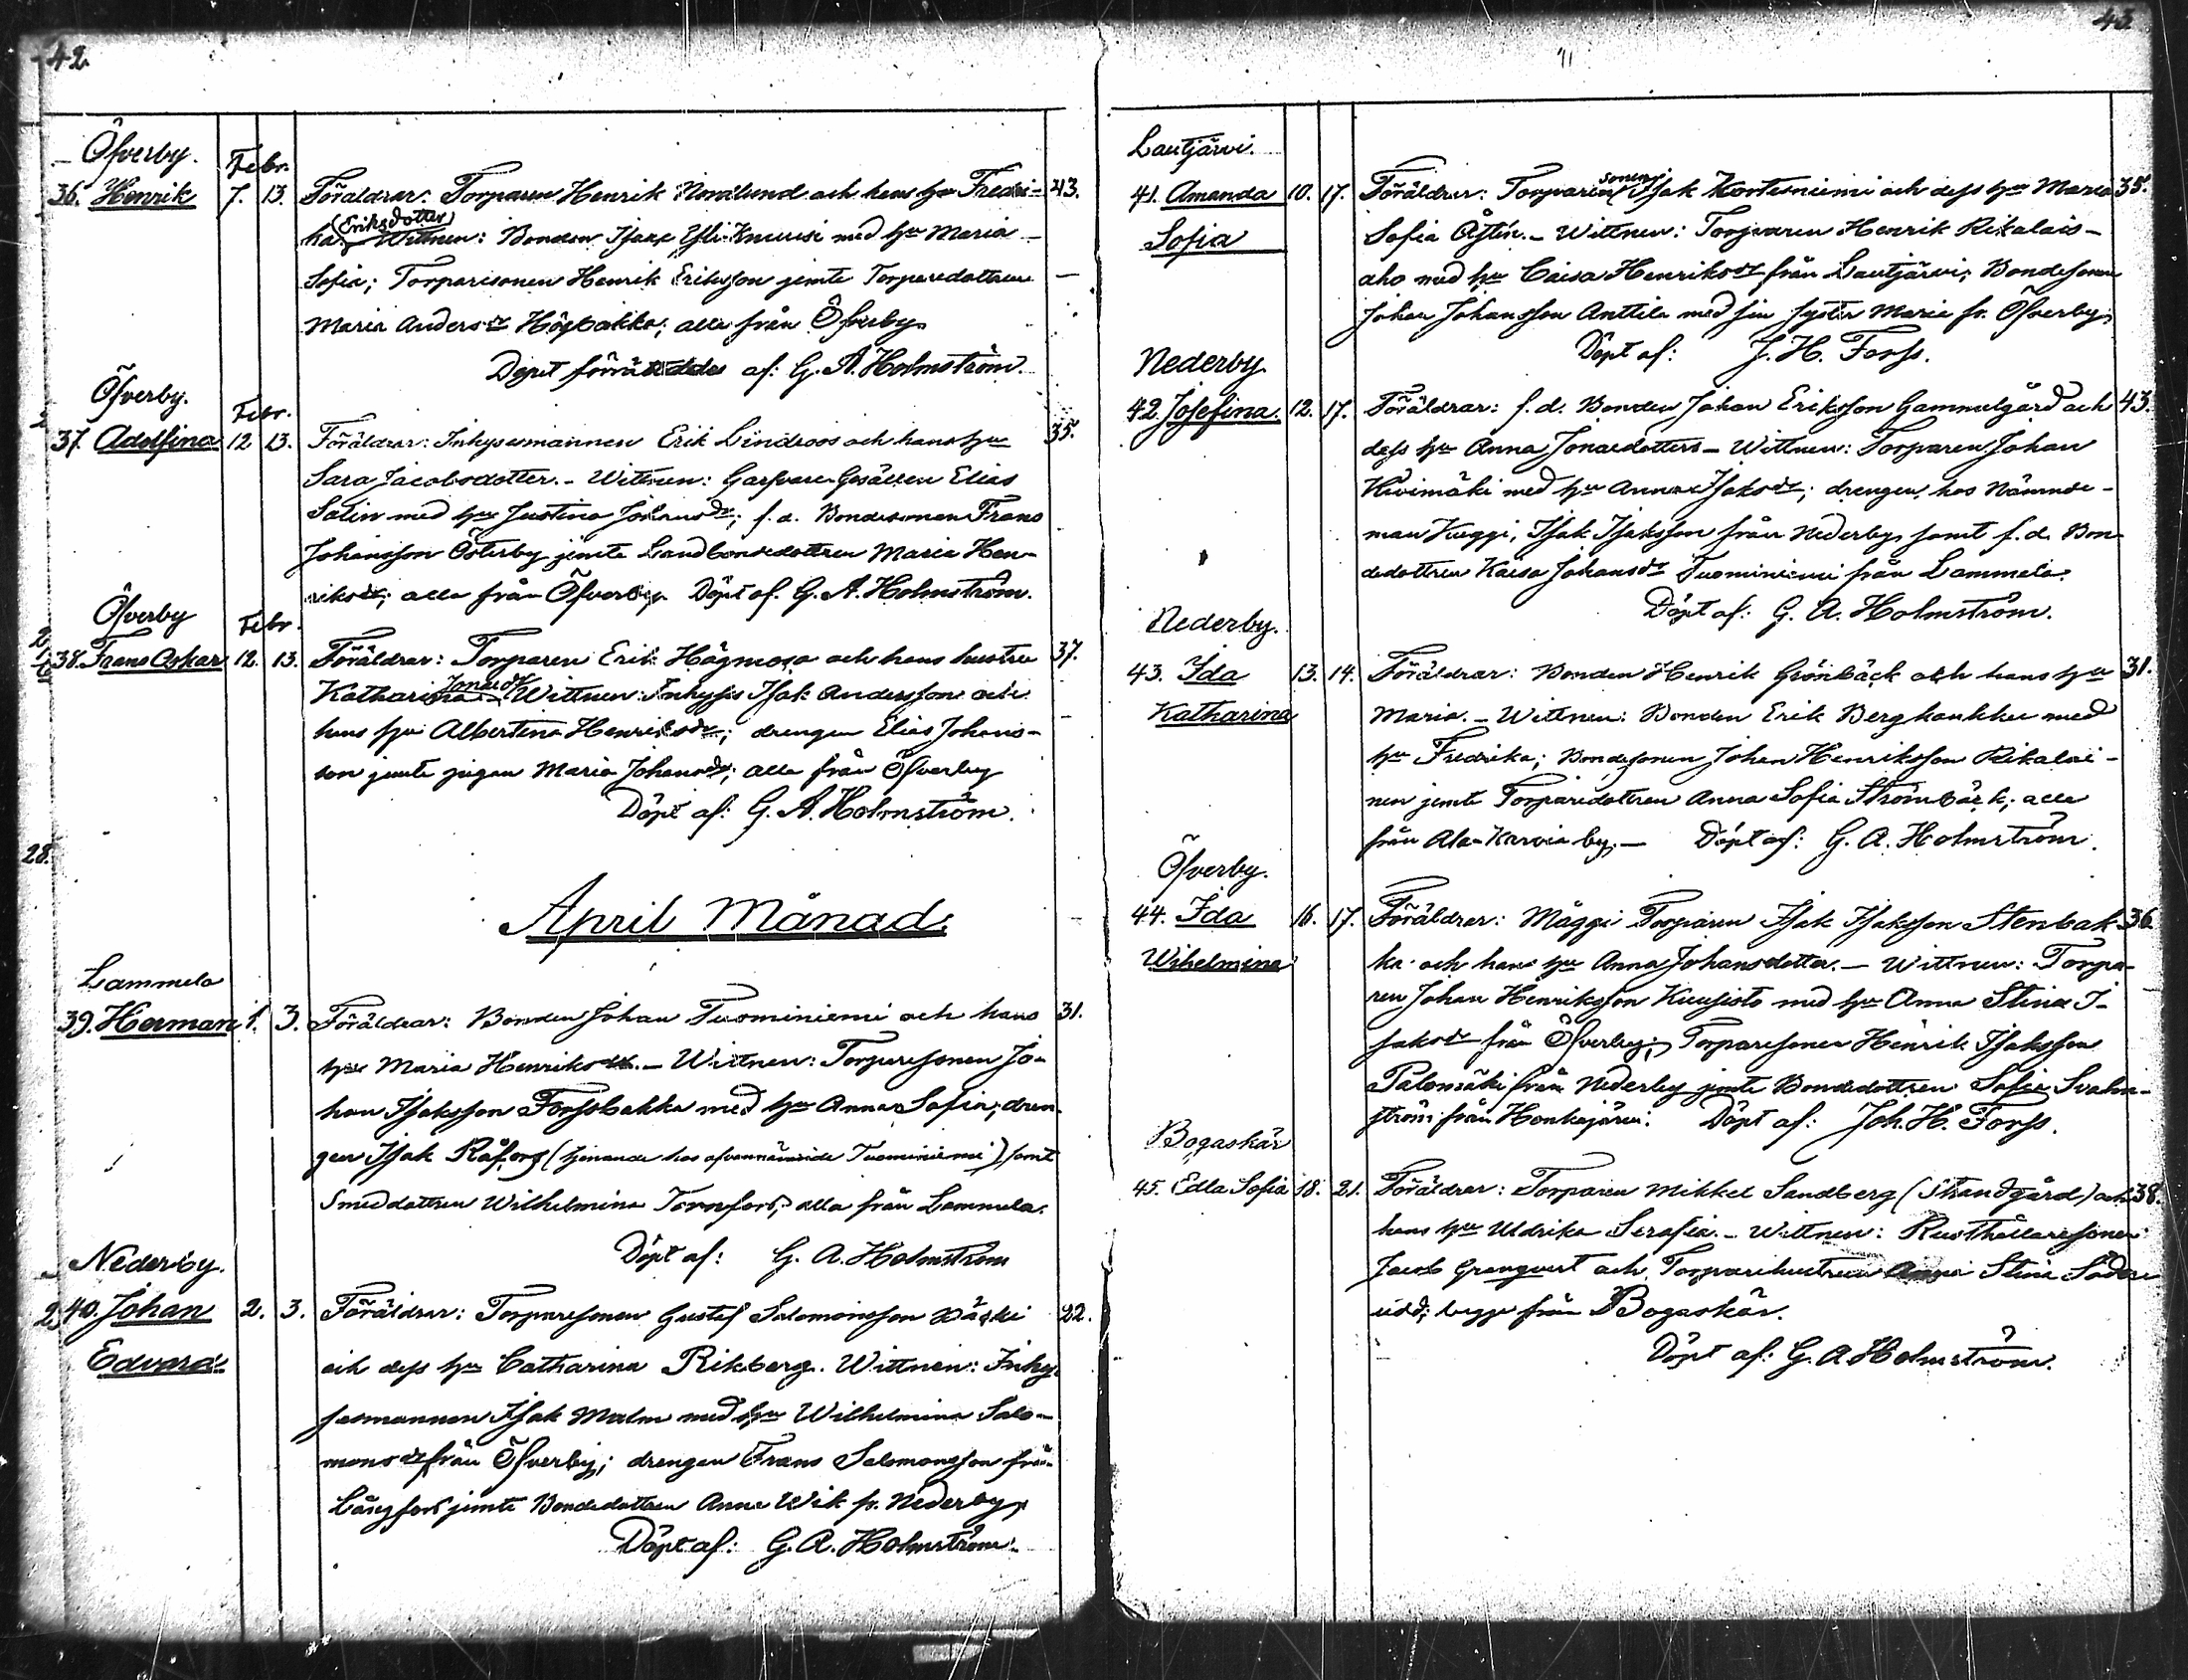 42.
Öfverby. Febr.
36. Henrik 7. 13. Föräldrar: Torparen Henrik Norrlund och hans hu Fredri- 43.
ka (Eriksdotter) Wittnen: Bonden Isaac Yli-Knuusi med hu Maria
Sofia; Torparesonen Henrik Eriksson jemte Torparedottren
Maria Andersdr Högbakka; alla från Öfverby.
Döpt af: G. A. Holmström.
Öfverby. Febr.
37. Adolfina 12 13. Föräldrar: Inhysesmannen Erik Lindroos och hans hu 35.
Sara Jacobsdotter. - Wittnen: Garfvare Gesällen Elias
Salin med hu Justina Johansdr; f.d. Bondesonen Frans
Johansson Österby jemte Landbondedottren Maria Hen-
riksdr; alla från Öfverby. Döpt af. G. A. Holmström.
Öfverby Febr.
38. Frans Oskar 12. 13. Föräldrar: Torparen Erik Högmosa och hans hustru 37.
Katharina Jonasdr Wittnen: Inhyses Isak Andersson och
hans hu Albertina Henriksdr; drengen Elias Johans-
son jemte pigan Maria Johansdr; alla från Öfverby
Döpt af: G. A. Holmström.
28.
April Månad.
Lammela
39. Herman 1. 3. Föräldrar: Bonden Johan Tuominiemi och hans 31.
hu Maria Henriksdr. - Wittnen: Torparesonen Jo-
han Isaksson Forssbakka med hu Anna Sofia; dren-
gen Isak Råfors (tjenande hos ofvannämnde Tuominiemi) samt
Smeddottren Wilhelmina Tornfors, alla från Lammela.
Döpt af: G. A. Holmström
Nederby.
40. Johan 2. 3. Föräldrar: Torparesonen Gustaf Salomonsson 22.
Edvard och dess hu Catharina Rikberg. Wittnen: Inhy-
sesmannen Isak Malm med hu Wilhelmina Salo-
monsdr från Öfverby; drengen Frans Salomonsson från
Långfors jemte Bondedottren Anna Wik fr. Nederby.
Döpt af: G. A. Holmström.
43.
Lautjärvi.
41. Amanda 10. 17. Föräldrar: Torparen sonen Isak Kortesniemi och dess hu Maria 35.
Sofia Sofia Åstin. - Wittnen: Torparen Henrik Rikalais-
aho med hu Caisa Henriksdr från Lautjärvi; Bondesonen
Johan Johansson Anttila med sin syster Maria fr. Öfverby.
Döpt af: J. H. Forss.
Nederby.
42. Josefina. 12. 17. Föräldrar: f.d. Bonden Johan Eriksson Gammelgård och 43.
dess hu Anna Jonasdotter - Wittnen: Torparen Johan
Kivimäki med hu Anna Isaksdr; drengen hos Nämnde-
man Kuggi, Isak Isaksson från Nederby, samt f.d. Bon-
dedottren Kaisa Johansdr Tuominiemi från Lammela.
Döpt af: G. A. Holmström.
Nederby.
43. Ida 13. 14. Föräldrar: Bonden Henrik Grönbäck och hans hu 31.
Katharina Maria. - Wittnen: Bonden Erik Berghankku med
hu Fredrika; Bondesonen Johan Henriksson Rikalai-
nen jemte Torparedottren Anna Sofia Strömbäck; alla
från Ala-Karvia by. - Döpt af: G. A. Holmström.
Öfverby.
44. Ida 16. 17. Föräldrar: Måggi Torparen Isak Isaksson Stenbak- 36
Wilhelmina ka och hans hu Anna Johansdotter. - Wittnen: Torpa-
ren Johan Henriksson Kuusisto med hu Anna Stina I-
saksdr från Öfverby; Torparesonen Henrik Isaksson
Palomäki från Nederby jemte Bondedottren Sofia Svalm-
ström från Honkajärvi. Döpt af: Joh. H. Forss.
Bogaskär
45. Edla Sofia 18. 21. Föräldrar: Torparen Mikkel Sandberg (Strandgård) och 38.
hans hu Uldrika Serafia. - Wittnen: Rusthållaresonen
Jacob Grenqvist och Torparehustrun Anna Stina Söder-
udd; begge från Bogaskär.
Döpt af: G. A Holmström.